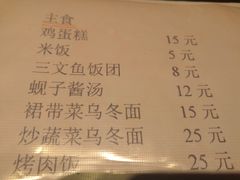 主食
鸡蛋糕 15 元
米饭 5 元
三文鱼饭团 8 元
蚬子酱汤 12 元
裙带菜乌冬面 15 元
炒蔬菜乌冬面 25 元
烤肉饭 25 元